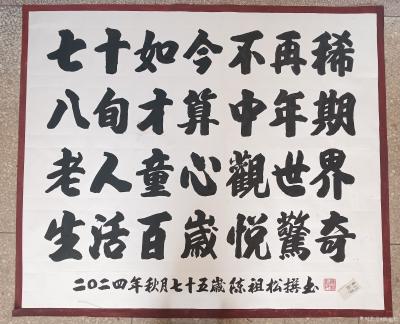 七十如今不再稀
八旬才算中年期
老人童心觀世界
生活百歲悅驚奇
二〇二四年秋月七十五歲陈祖松撰书